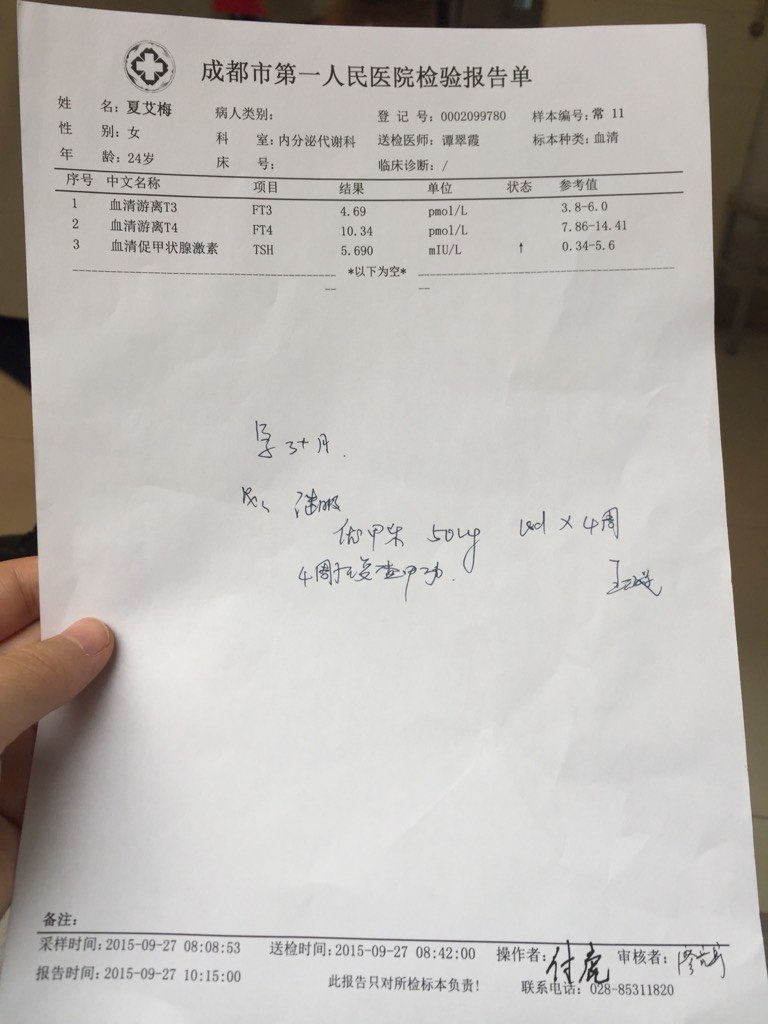 成都市第一人民医院检验报告单
姓 名: 夏艾梅 病人类别: 登 记 号: 0002099780 样本编号: 常 11
性 别: 女 科 室: 内分泌代谢科 送检医师: 谭翠霞 标本种类: 血清
年 龄: 24岁 床 号: 临床诊断: /
序号 中文名称 项目 结果 单位 状态 参考值
1 血清游离T3 FT3 4.69 pmol/L 3.8-6.0
2 血清游离T4 FT4 10.34 pmol/L 7.86-14.41
3 血清促甲状腺激素 TSH 5.690 mIU/L ↑ 0.34-5.6
*以下为空*
孕3+月.
继服
优甲乐 50ug qd × 4周
4周后复查甲功.
备注:
采样时间: 2015-09-27 08:08:53 送检时间: 2015-09-27 08:42:00 操作者: 付虎 审核者:
报告时间: 2015-09-27 10:15:00 此报告只对所检标本负责! 联系电话: 028-85311820